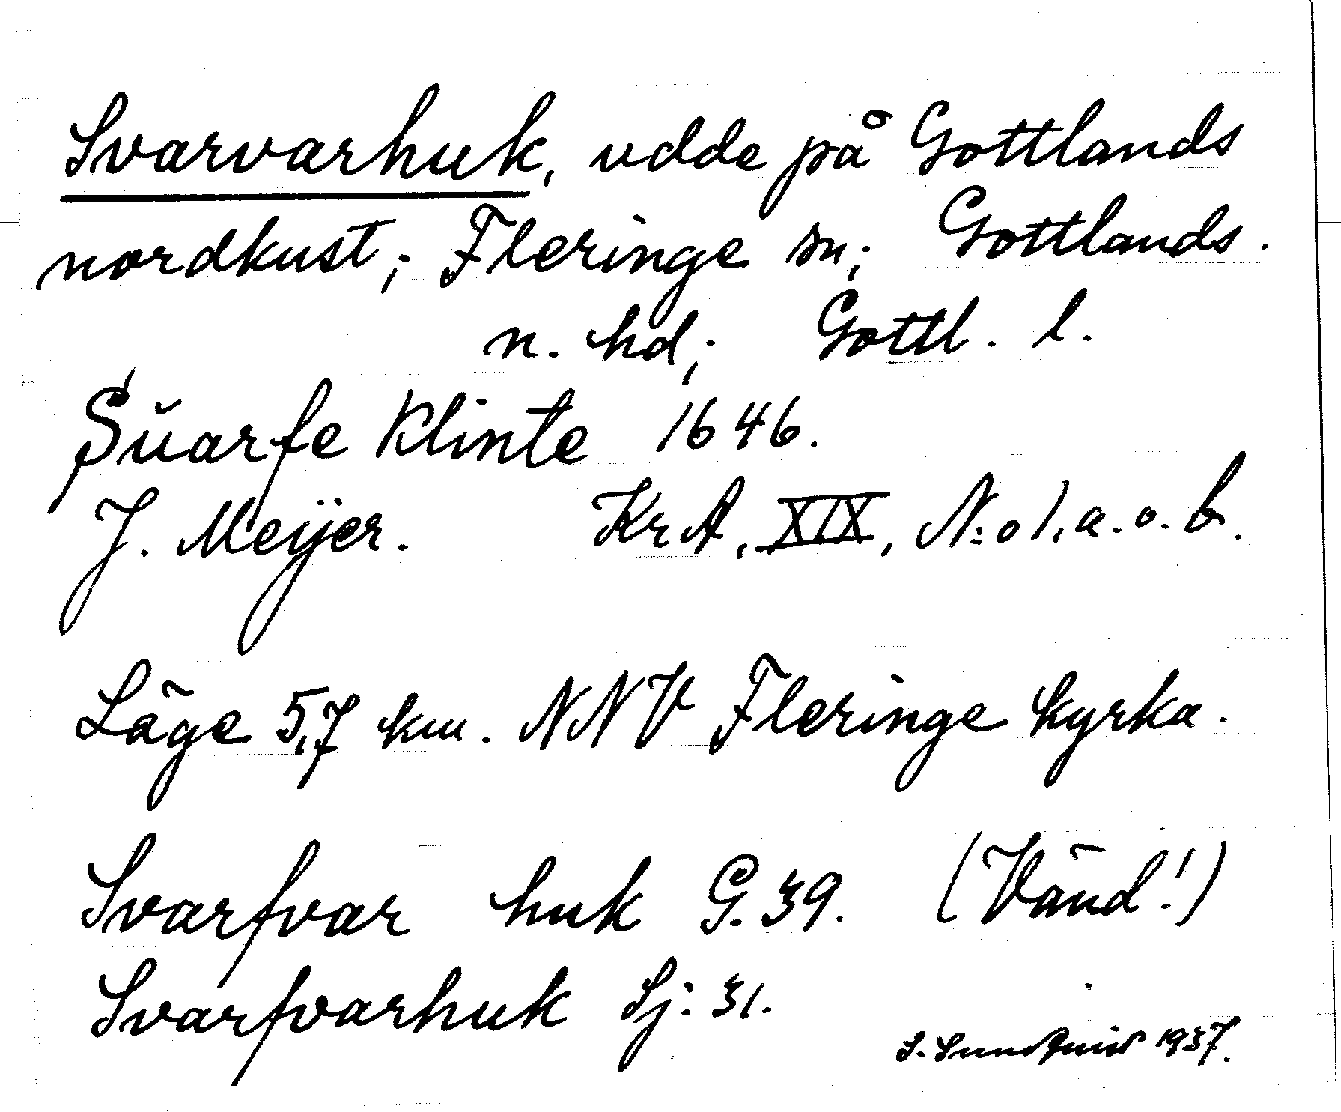 Svarvarhuk, udde på Gottlands
nordkust; Fleringe sn; Gottlands.
n. hd; Gottl. l.
Sŭarfe Klinte 1646.
J. Meijer. KrA, XIX, N:o 1, a. o. b.
Läge 5,7 km. NNV Fleringe kyrka.
Svarfvar huk G. 39. (Vänd!)
Svarfvarhuk Sj: 31.
S. Sundquist 1937.